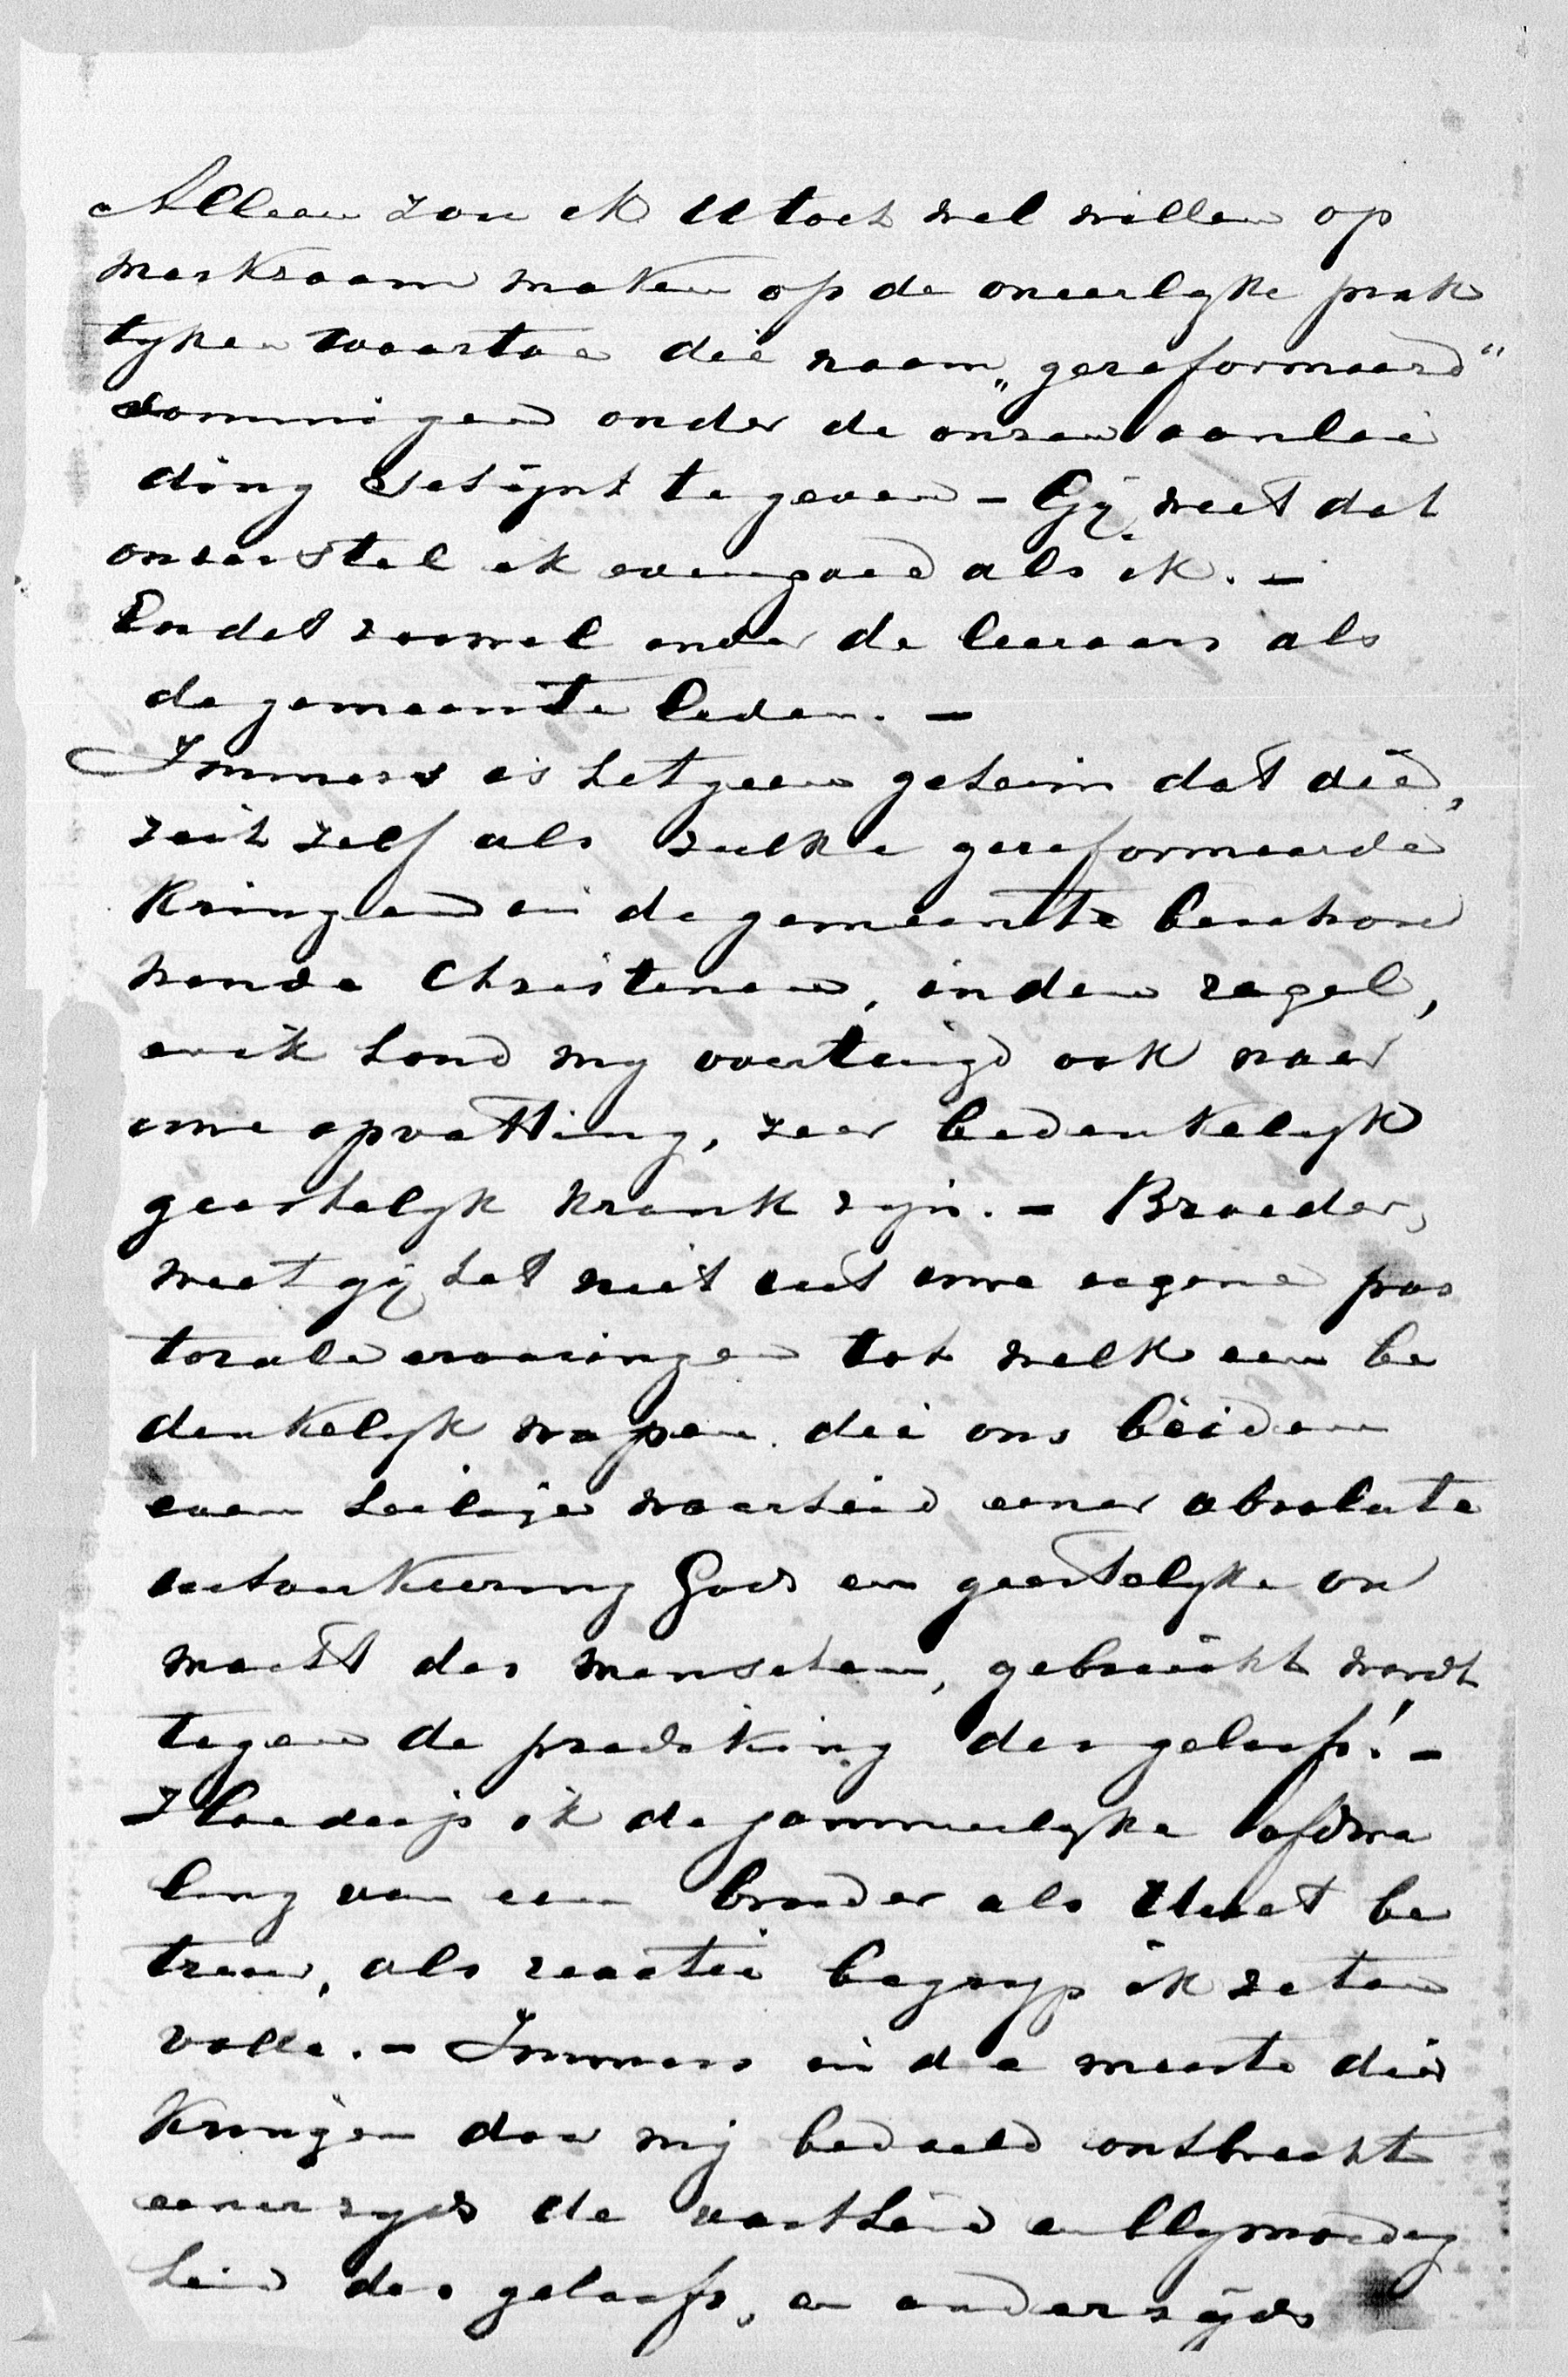 Alleen zou ik U toch wel willen op
merkzaam maken op de oneerlyke prak
tyken waartoe die naam „gereformeerd"
sommigen onder de onzen aanlei
ding schijnt te geven – Gij weet dat
onderstel ik evengoed als ik. –
En dat zoowel onder de leeraars als
de gemeente leden. –
Immers is het geen geheim dat die,
zich zelf als zulke gereformeerde
kringen in de gemeente beschou
wende Christenen, in den regel,
en ik houd my overtuigd ook naar
uwe opvatting, zeer bedenkelyk
geestelyk krank zijn. – Broeder,
weet gij het niet uit uwe eigene pas
torale ervaringen tot welk een be
denkelyk wapen die ons beiden
even heilige waarheid eener absolute
uitverkiezing Gods en geestelyke on
macht des menschen, gebruikt wordt
tegen de prediking des geloofs! –
Hoe diep ik de jammerlyke afdwa
ling van een broeder als Huet be
treur, als reactie begryp ik ze ten
volle. – Immers in de meeste dier
kringen door mij bedoeld ontbreekt
eenerzyds de vastheid en blymoedig
heid des geloofs, en anderzijds